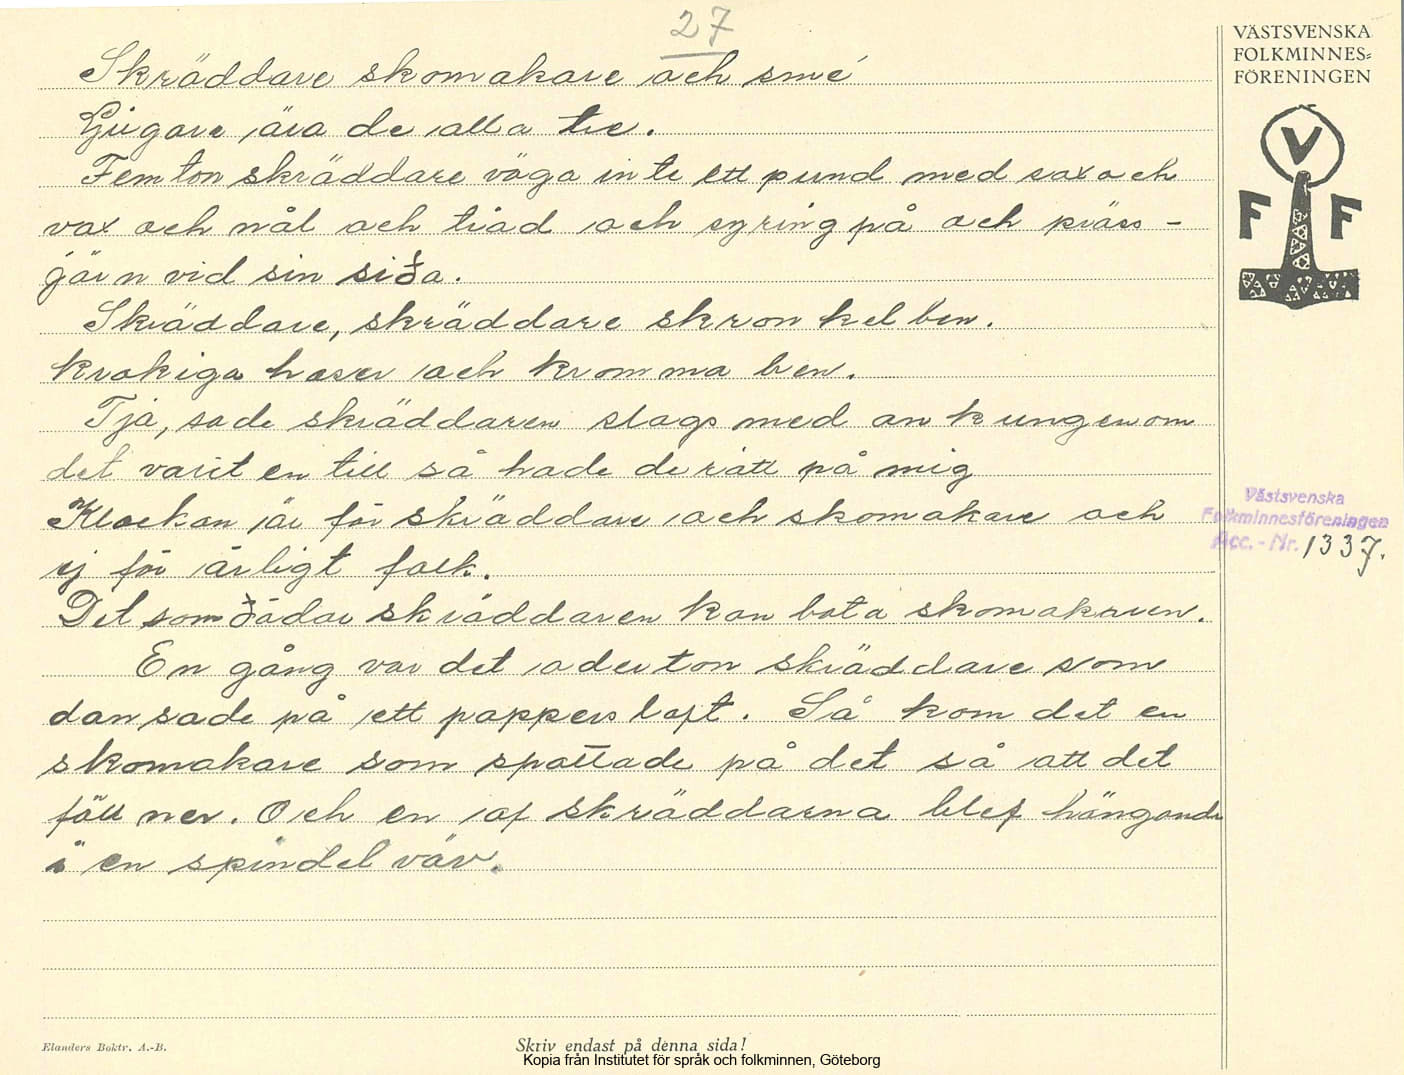 27
VÄSTSVENSKA
FOLKMINNES=
FÖRENINGEN
V
F F
Skräddare skomakare och sme
Ljugare ära de alla tre.
Femton skräddare väga inte ett pund med sax och
vax och nål och tråd och syring på och präss-
järn vid sin sida.
Skräddare, skräddare skronkelben.
krokiga haser och kromma ben.
Tja, sade skräddaren slags med an kungen om
det varit en till så hade de rått på mig
Klockan är för skräddare och skomakare och
ej för ärligt folk.
Det som dödar skräddaren kan bota skomakaren.
En gång var det aderton skräddare som
dansade på ett pappersloft. Så kom det en
skomakare som spottade på det så att det
föll ner. Och en af skräddarna blef hängande
i en spindelväv.
Västsvenska
Folkminnesföreningen
Acc. - Nr. 1337.
Elanders Boktr. A.-B.
Skriv endast på denna sida!
Kopia från Institutet för språk och folkminnen, Göteborg